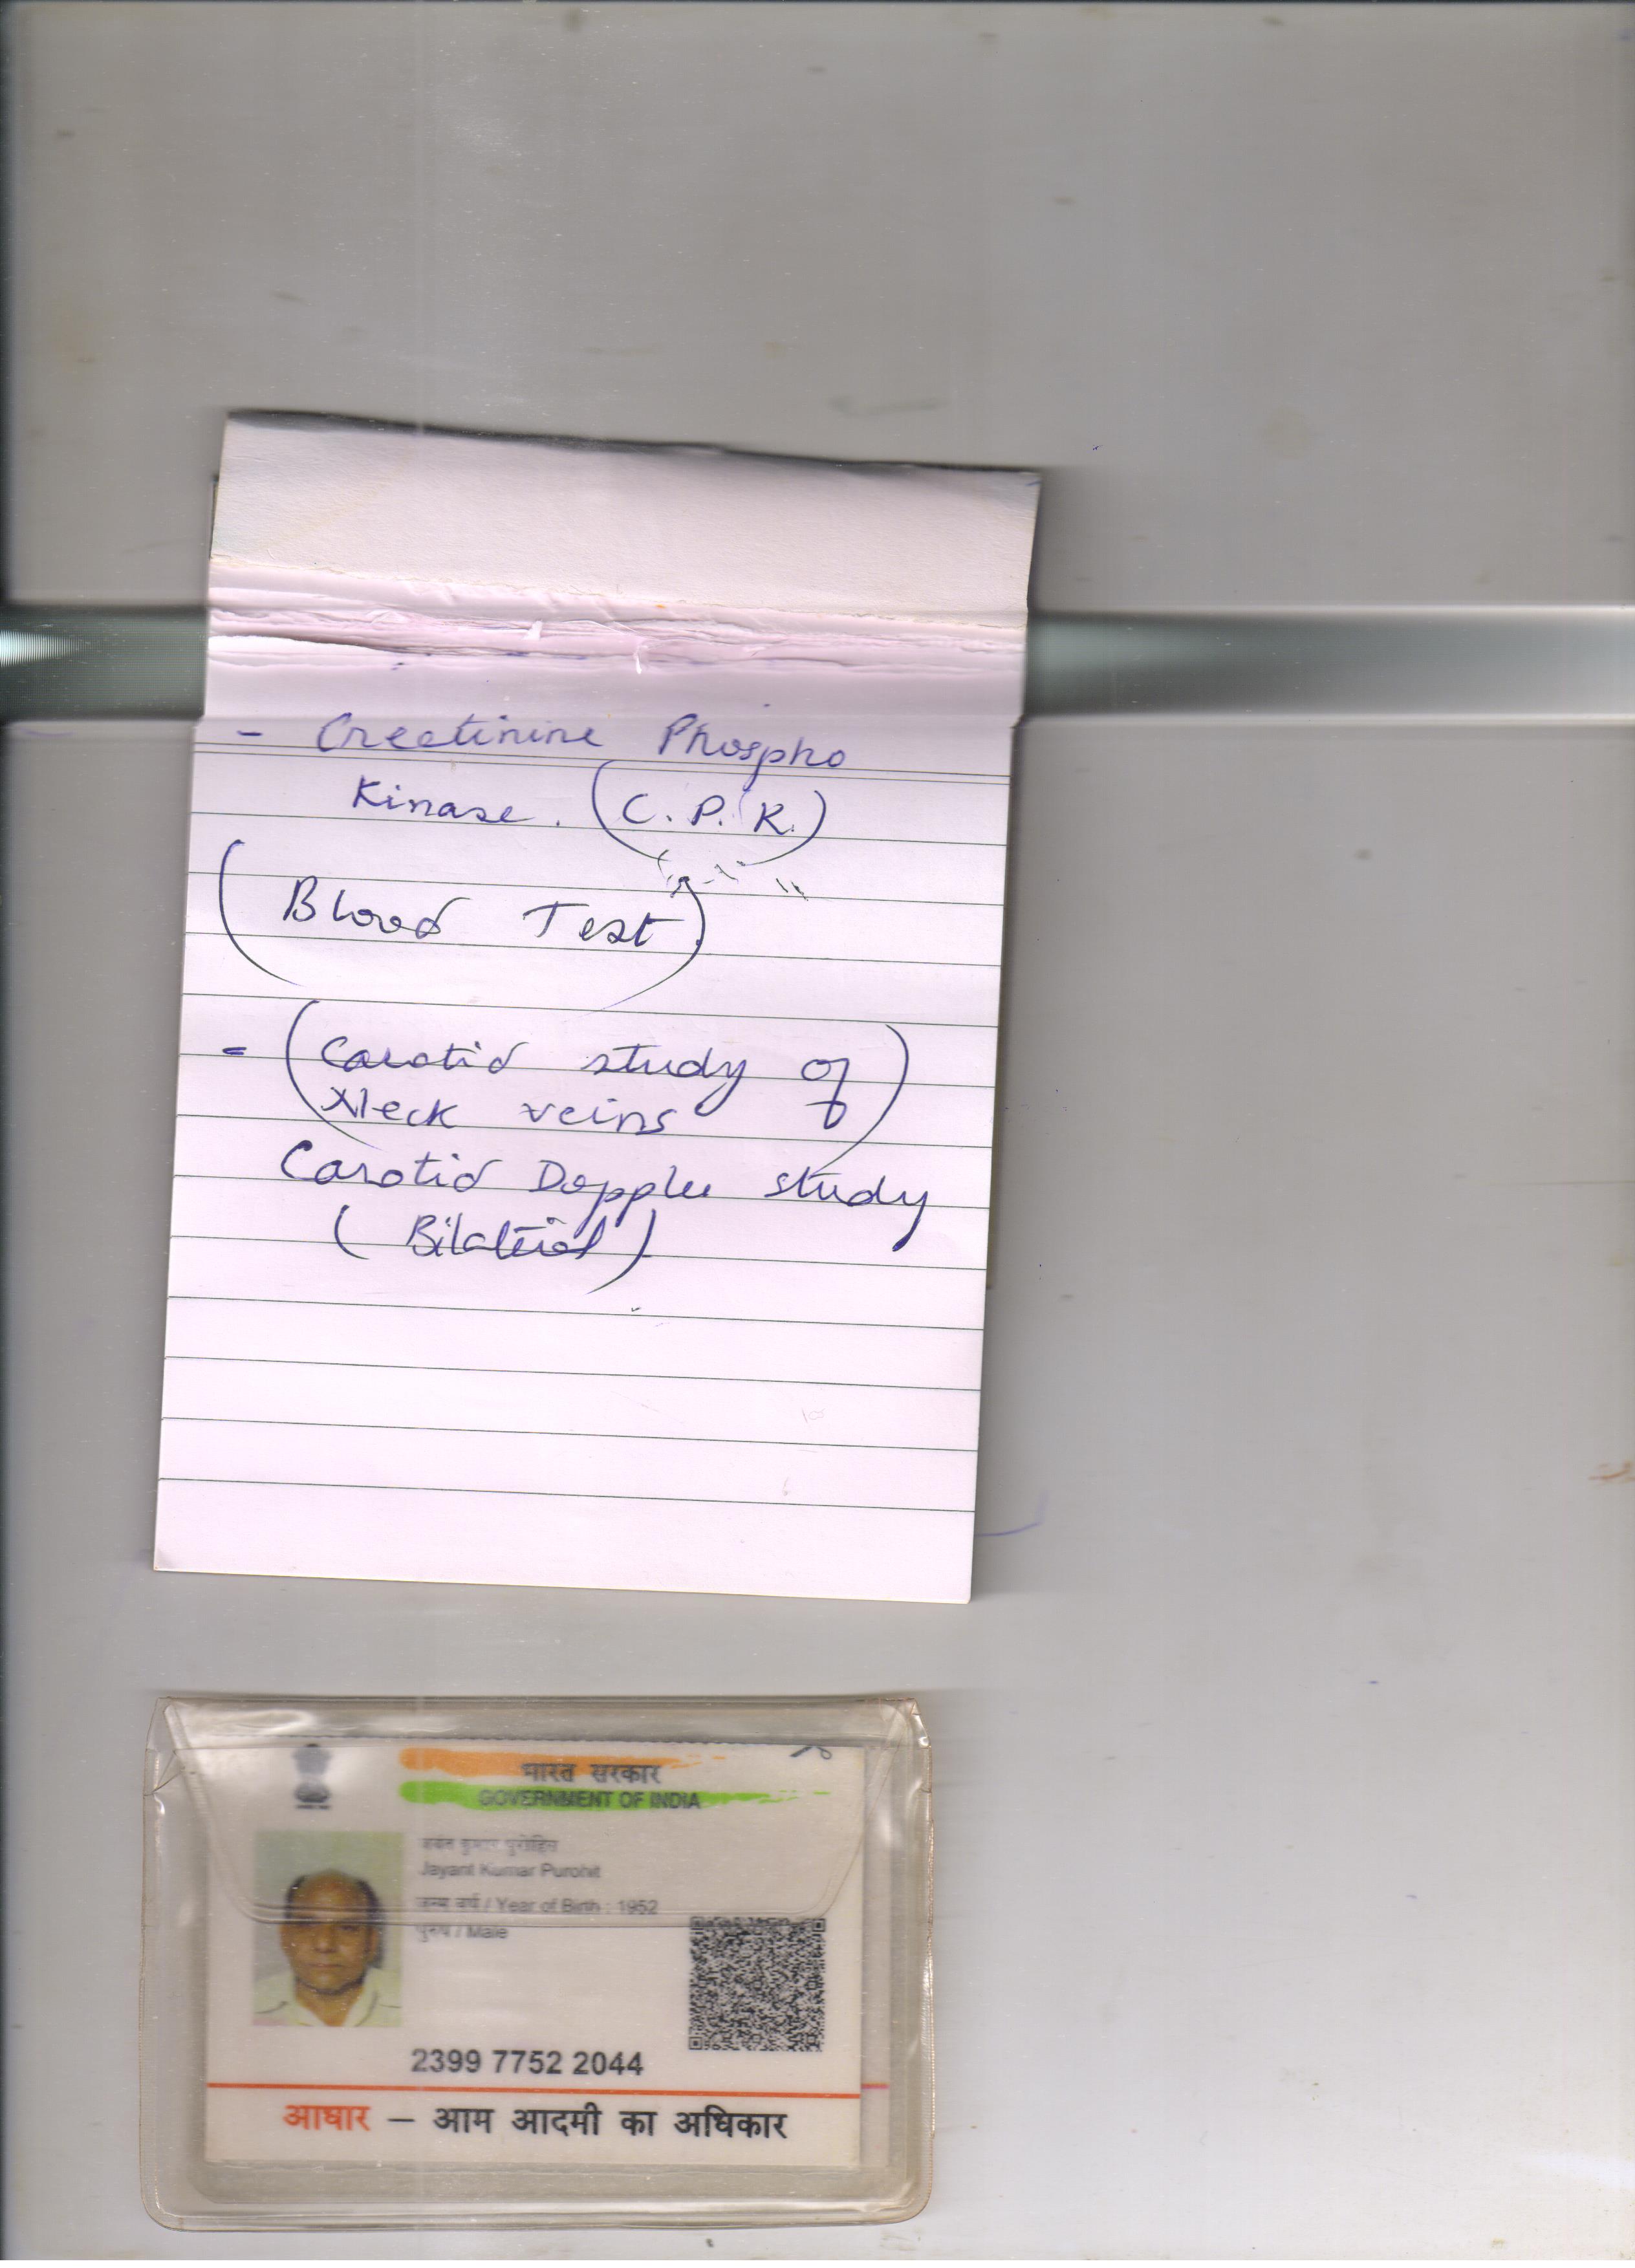 - Creetinine Phospho
Kinase. (C.P.K.)
(Blood Test)
- (Carotid study of
Neck veins)
Carotid Doppler study
(Bilateral)
भारत सरकार
GOVERNMENT OF INDIA
जयंत कुमार पुरोहित
Jayant Kumar Purohit
जन्म वर्ष / Year of Birth : 1952
पुरुष / Male
2399 7752 2044
आधार – आम आदमी का अधिकार